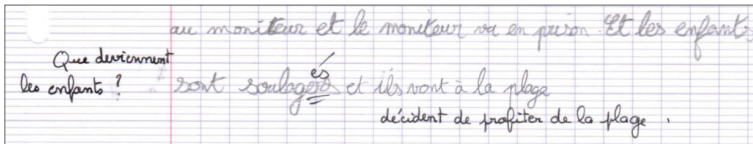 au moniteur et le moniteur va en prison. Et les enfants
Que deviennent
les enfants ?
sont soulagers et ils vont à la plage
és
décident de profiter de la plage.